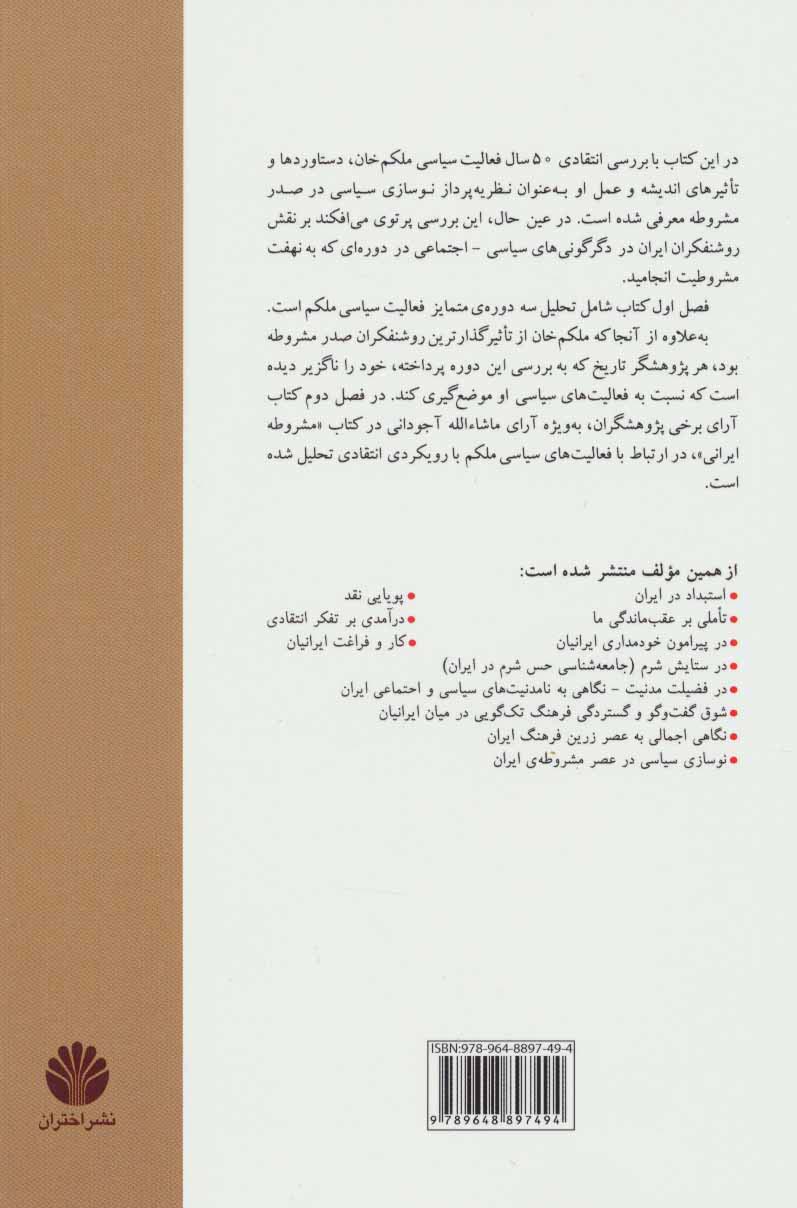 در این کتاب با بررسی انتقادی ۵۰ سال فعالیت سیاسی ملکم‌خان، دستاوردها و
تأثیرهای اندیشه و عمل او به‌عنوان نظریه‌پرداز نوسازی سیاسی در صدر
مشروطه معرفی شده است. در عین حال، این بررسی پرتوی می‌افکند بر نقش
روشنفکران ایران در دگرگونی‌های سیاسی - اجتماعی در دوره‌ای که به نهفت
مشروطیت انجامید.
فصل اول کتاب شامل تحلیل سه دوره‌ی متمایز فعالیت سیاسی ملکم است.
به‌علاوه از آنجا که ملکم‌خان از تأثیرگذارترین روشنفکران صدر مشروطه
بود، هر پژوهشگر تاریخ که به بررسی این دوره پرداخته، خود را ناگزیر دیده
است که نسبت به فعالیت‌های سیاسی او موضع‌گیری کند. در فصل دوم کتاب
آرای برخی پژوهشگران، به‌ویژه آرای ماشاءالله آجودانی در کتاب «مشروطه
ایرانی»، در ارتباط با فعالیت‌های سیاسی ملکم با رویکردی انتقادی تحلیل شده
است.
از همین مؤلف منتشر شده است:
● استبداد در ایران ● پویایی نقد
● تأملی بر عقب‌ماندگی ما ● درآمدی بر تفکر انتقادی
● در پیرامون خودمداری ایرانیان ● کار و فراغت ایرانیان
● در ستایش شرم (جامعه‌شناسی حس شرم در ایران)
● در فضیلت مدنیت - نگاهی به نامدنیت‌های سیاسی و احتماعی ایران
● شوق گفت‌وگو و گستردگی فرهنگ تک‌گویی در میان ایرانیان
● نگاهی اجمالی به عصر زرین فرهنگ ایران
● نوسازی سیاسی در عصر مشروطه‌ی ایران
ISBN:978-964-8897-49-4
9 789648 897494
نشر اختران